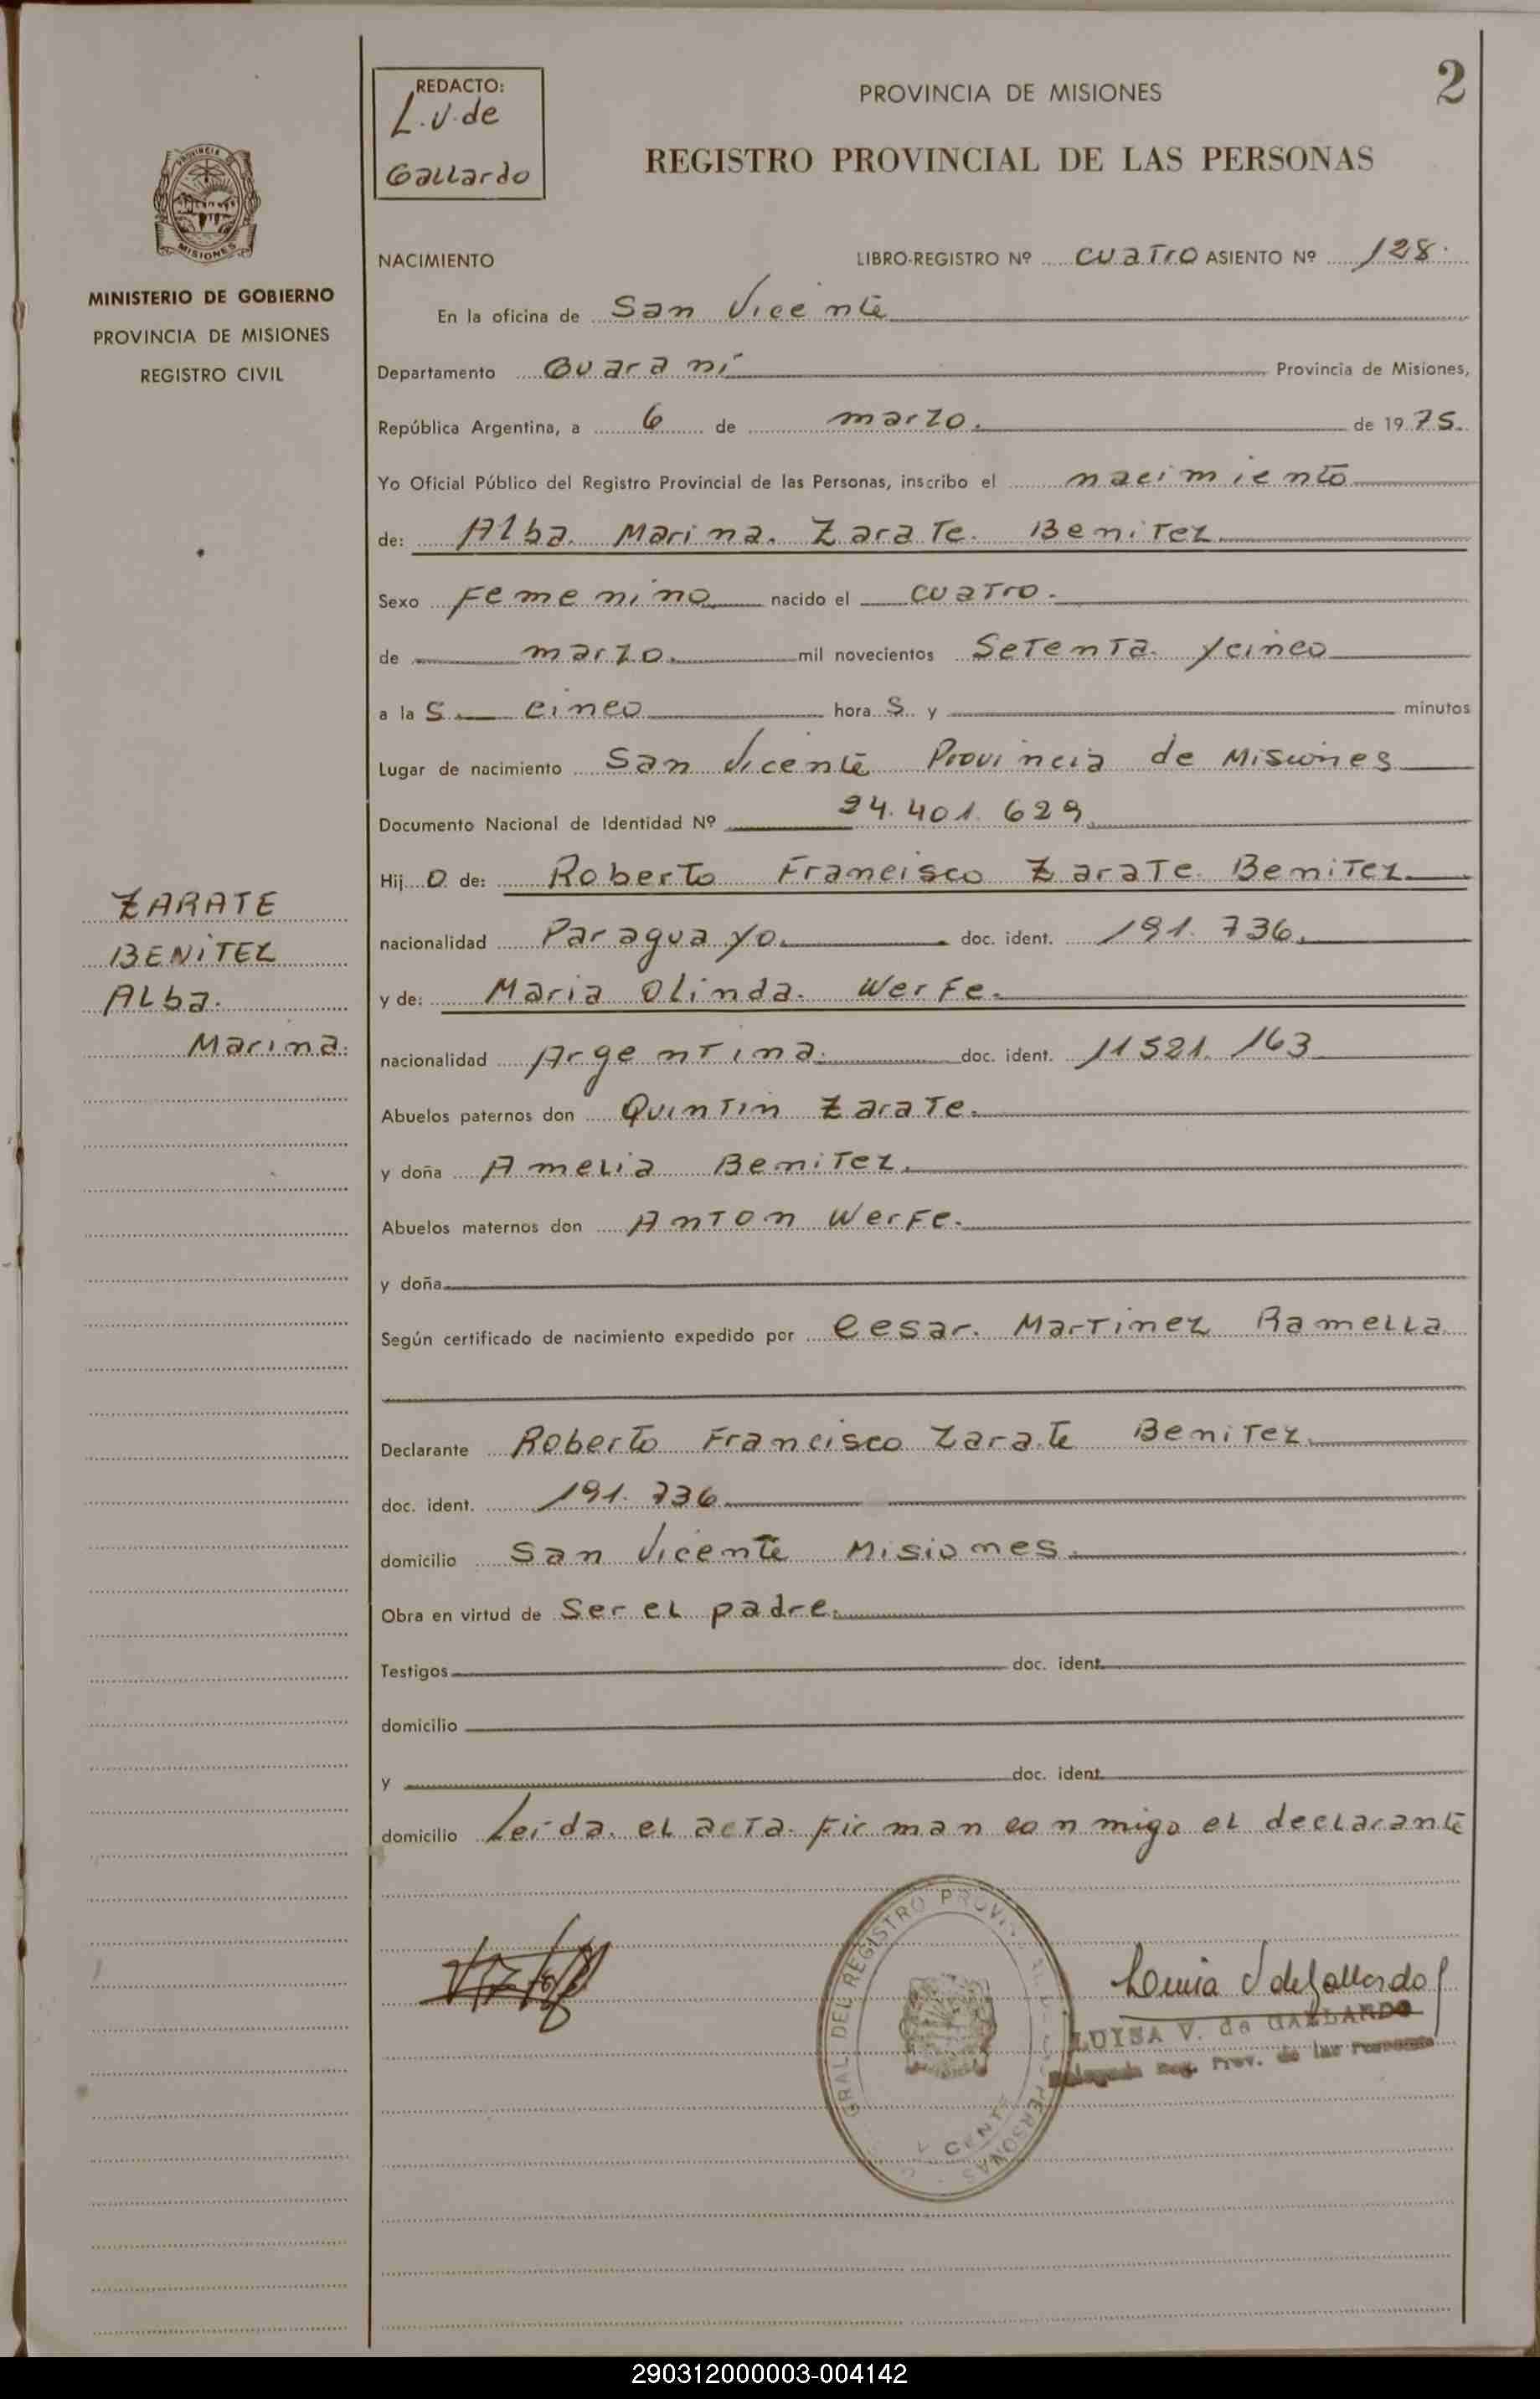 2
REDACTO:
L.V. de
Gallardo
PROVINCIA DE MISIONES
REGISTRO PROVINCIAL DE LAS PERSONAS
PROVINCIA DE
MISIONES
MINISTERIO DE GOBIERNO
PROVINCIA DE MISIONES
REGISTRO CIVIL
NACIMIENTO LIBRO-REGISTRO Nº cuatro ASIENTO Nº 128.
En la oficina de San Vicente
Departamento Guaraní Provincia de Misiones,
República Argentina, a 6 de marzo. de 1975.
Yo Oficial Público del Registro Provincial de las Personas, inscribo el nacimiento
de: Alba Marina Zarate Benitez
Sexo Femenino nacido el cuatro.
de marzo mil novecientos Setenta y cinco
a la s cinco hora s y minutos
Lugar de nacimiento San Vicente Provincia de Misiones
Documento Nacional de Identidad Nº 24.401.629
Hij o de: Roberto Francisco Zarate Benitez
nacionalidad Paraguayo. doc. ident. 191.736.
y de: Maria Olinda Werfe.
nacionalidad Argentina. doc. ident. 11521.163
Abuelos paternos don Quintin Zarate.
y doña Amelia Benitez.
Abuelos maternos don Anton Werfe.
y doña
Según certificado de nacimiento expedido por Cesar Martinez Ramella
Declarante Roberto Francisco Zarate Benitez
doc. ident. 191.736
domicilio San Vicente Misiones.
Obra en virtud de Ser el padre.
Testigos doc. ident.
domicilio
y doc. ident.
domicilio Leída el acta firman conmigo el declarante
ZARATE
BENITEZ
Alba.
Marina.
GRAL. DEL REGISTRO PERSONAS
Luisa V de Gallardo
LUISA V. de GALLARDO
Delegada Reg. Prov. de las Personas
290312000003-004142